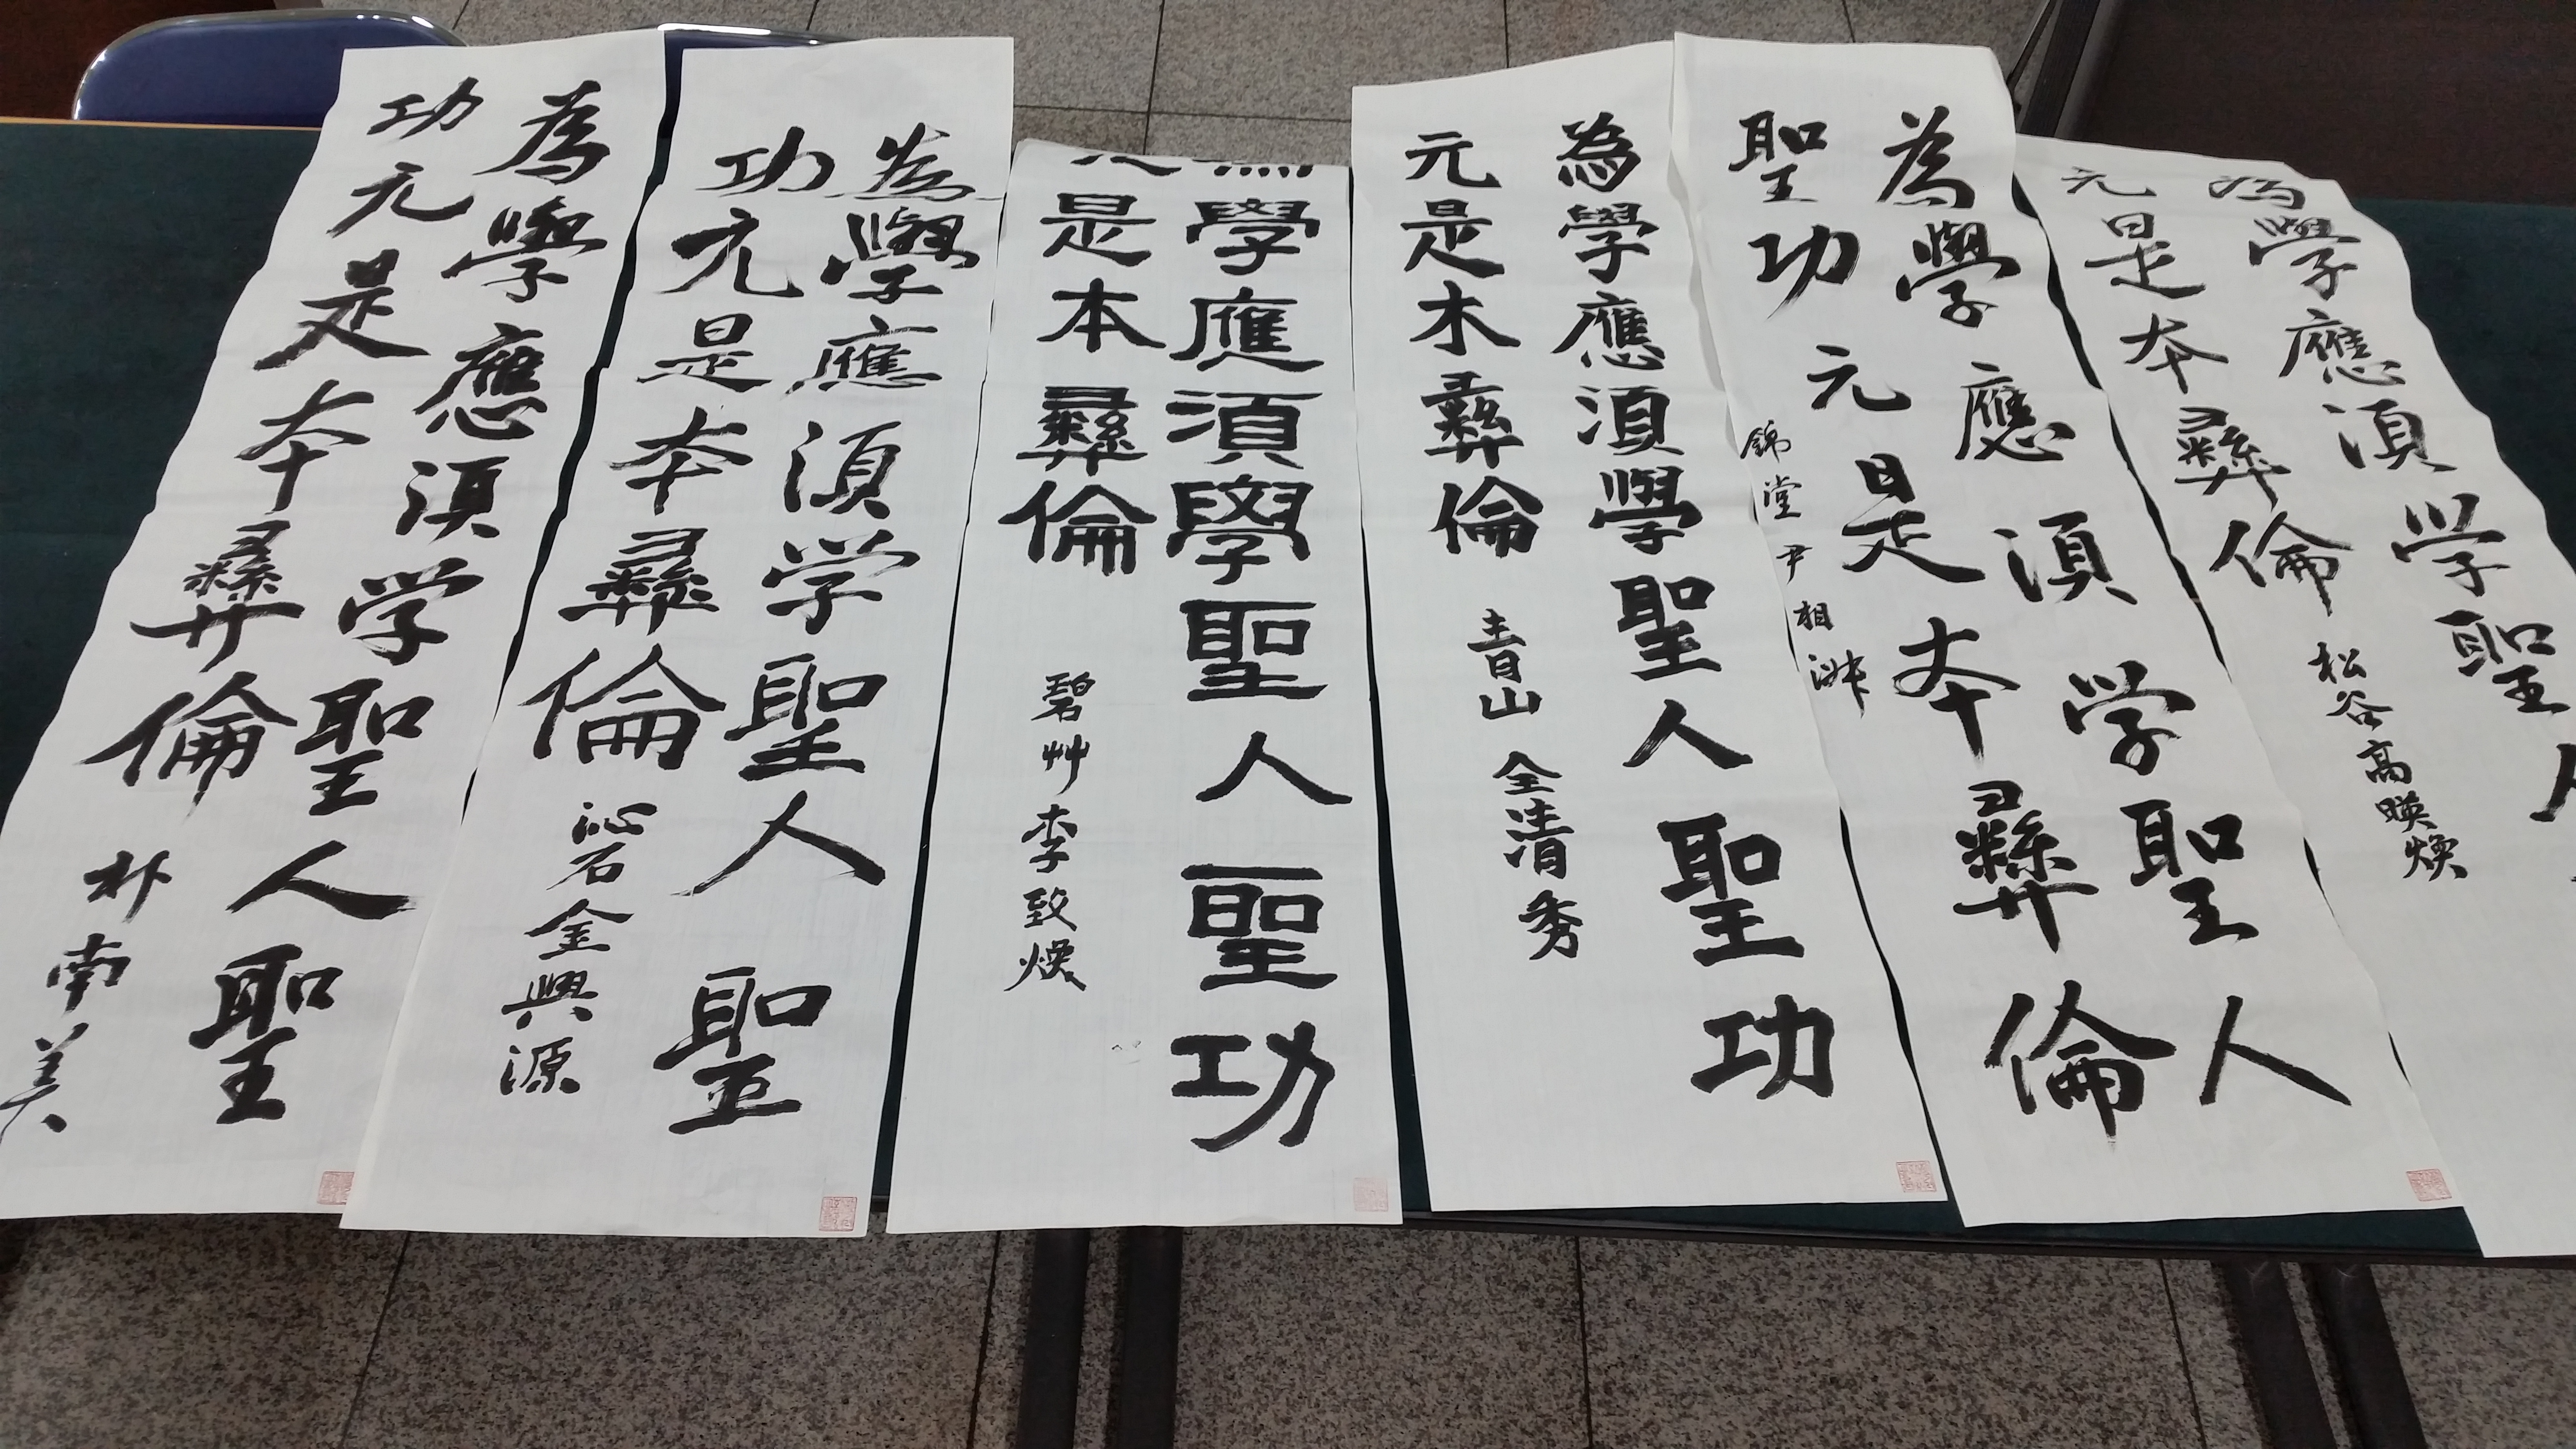 為學應須学聖人
元是本彝倫 松谷高暎煥
為學應須学聖人
聖功元是本彝倫
錦堂尹相洙
為學應須學聖人聖功
元是木彝倫 青山 全清秀
學應須學聖人聖功
是本彝倫 碧艸李致煥
為學應須学聖人聖
功元是本彝倫 沁石金興源
為學應須学聖人聖
功元是本彝倫 朴南美